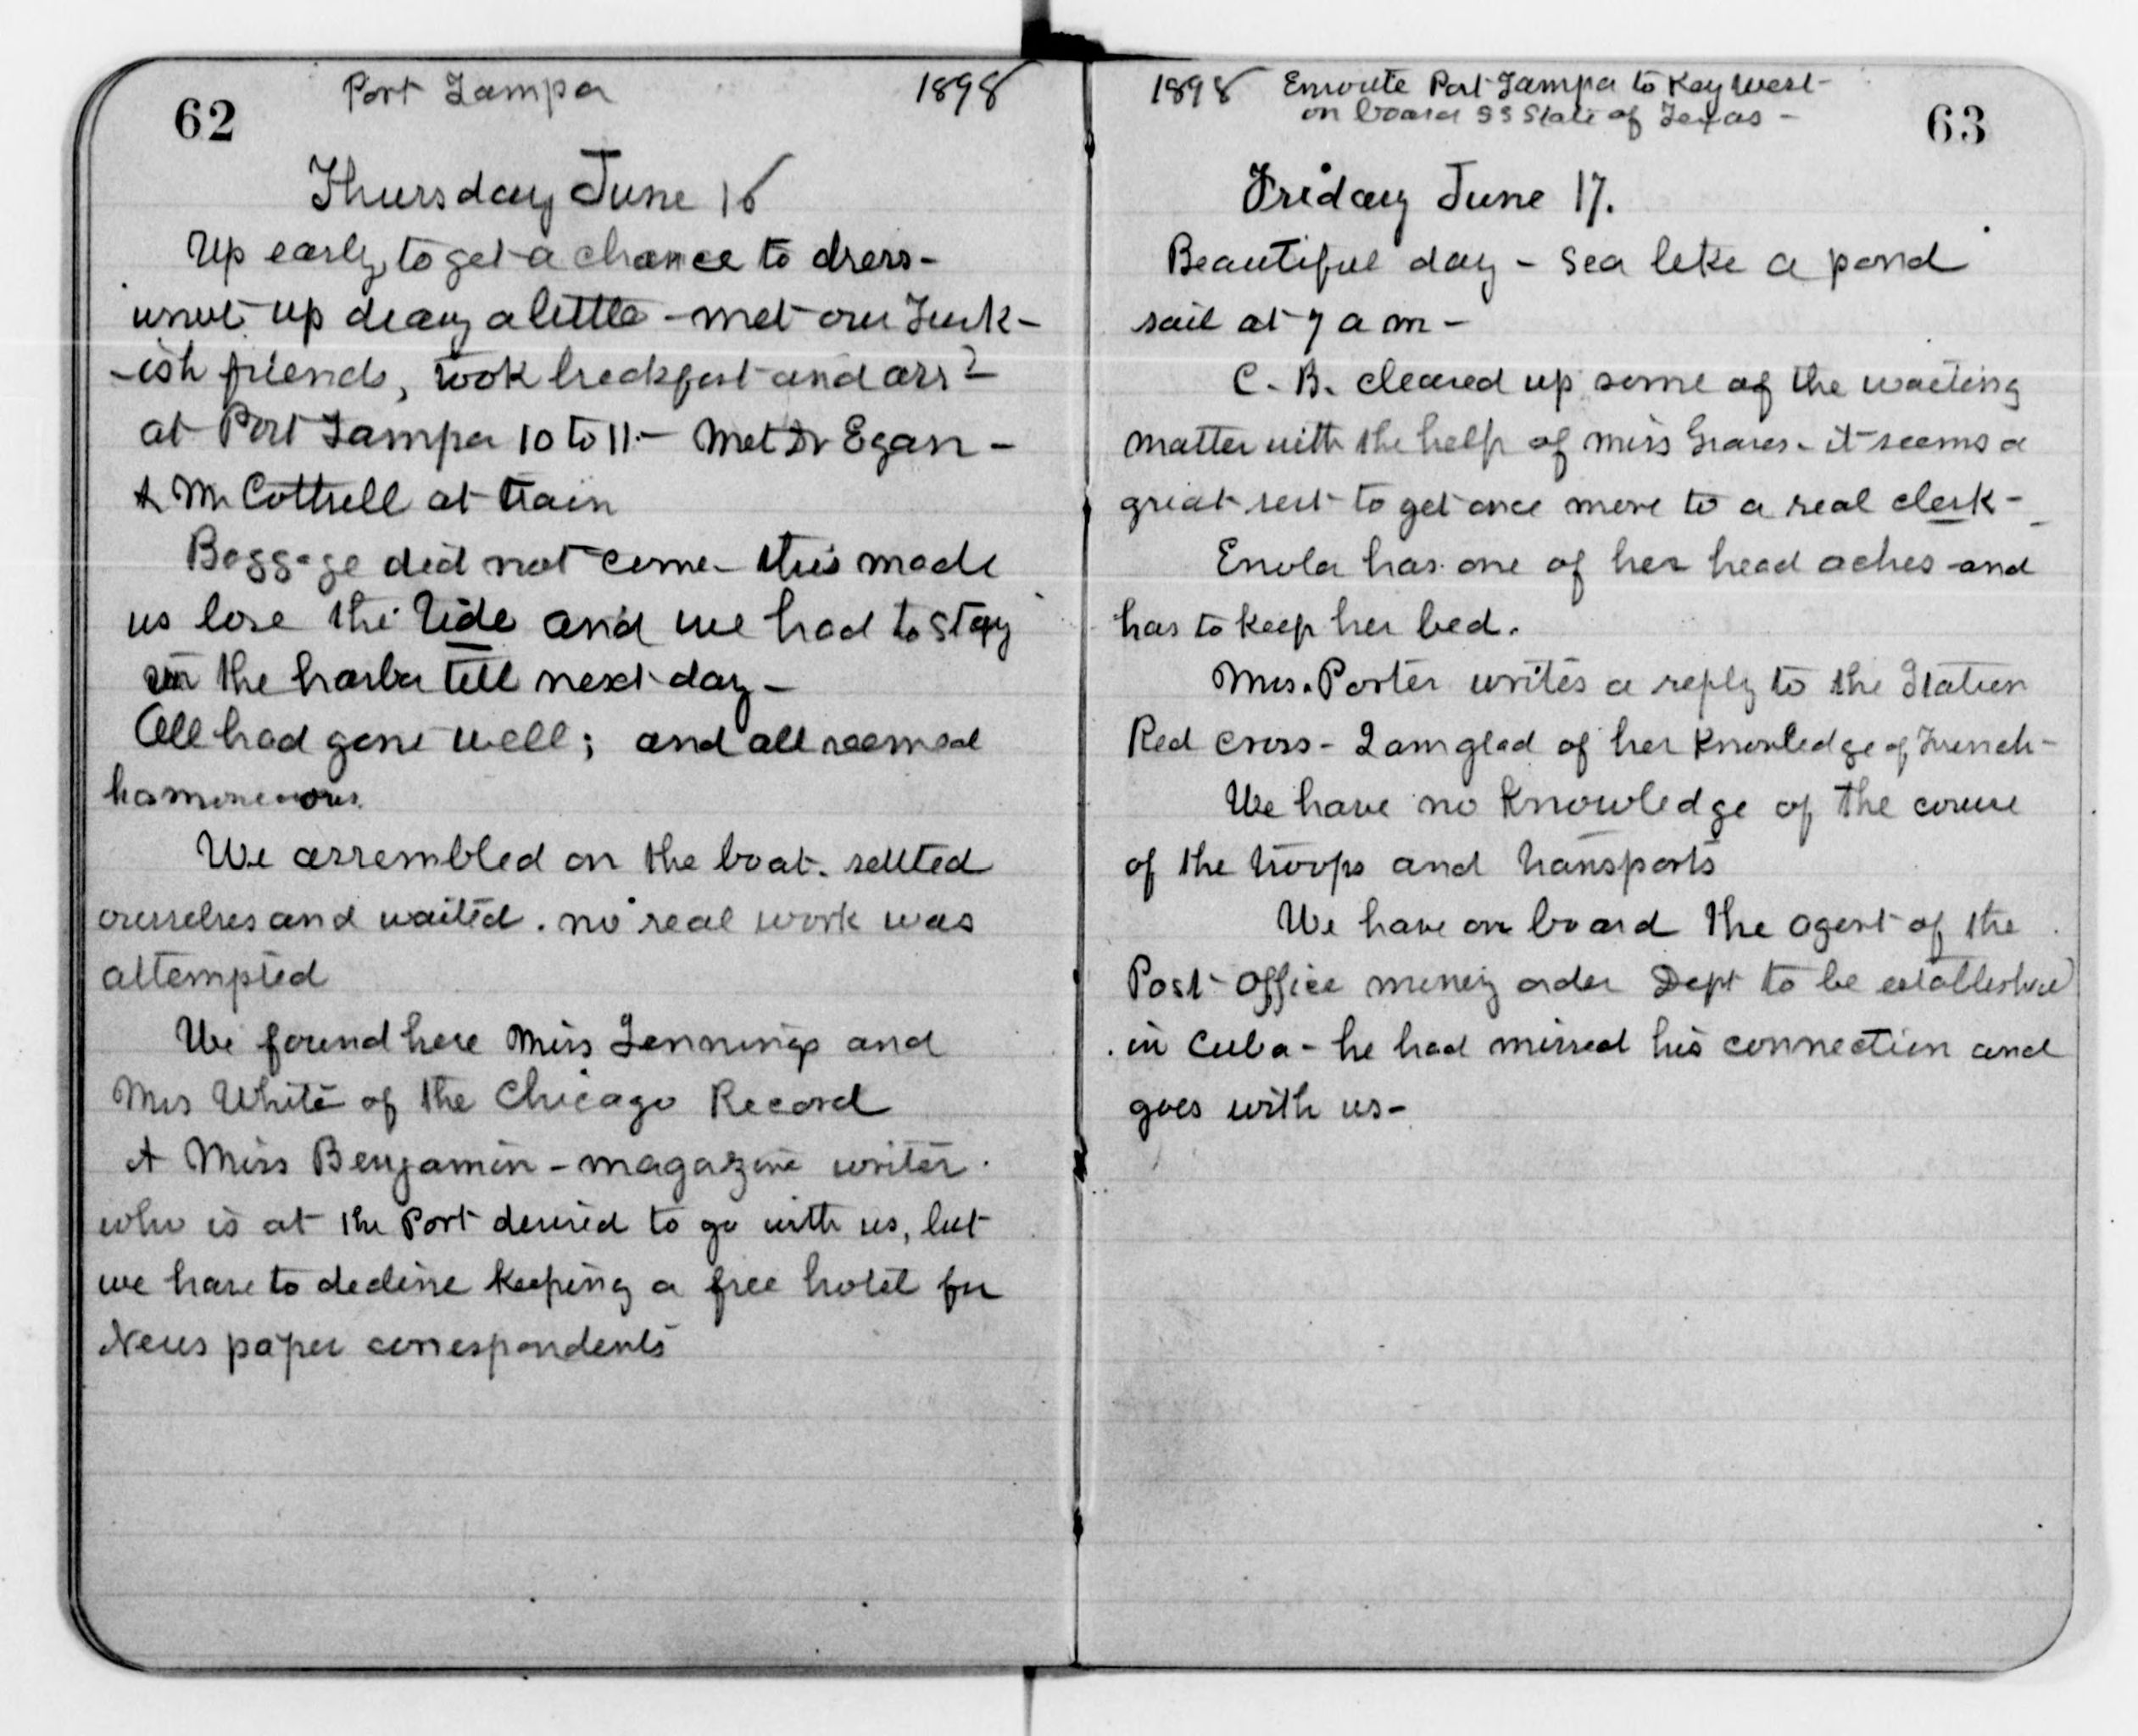 62
Port Tampa 1898
Thursday June 16
Up early, to get a chance to dress-
wrote up diary a little - met our Turk-
-ish friends, took breakfast and arrd
at Port Tampa 10 to 11 - Met Dr Egan -
& Mr Cottrell at train
Baggage did not come - this made
us lose the tide and we had to stay
in the harbor till next day -
All had gone well; and all seemed
harmonious.
We assembled on the boat. settled
ourselves and waited. no real work was
attempted
We found here Miss Jennings and
Mrs White of the Chicago Record
A Miss Benjamin - magazine writer.
who is at the Port desired to go with us, but
we have to decline keeping a free hotel for
News paper correspondents
1898 Enroute Port Tampa to Key West -
on board SS State of Texas -
63
Friday June 17.
Beautiful day - sea like a pond
sail at 7 a m -
C. B. cleared up some of the waiting
matter with the help of Miss Graves - it seems a
great rest to get once more to a real clerk -
Enola has one of her head aches and
has to keep her bed.
Mrs. Porter writes a reply to the Italien
Red Cross - I am glad of her knowledge of French -
We have no knowledge of the course
of the troops and transports
We have on board the agent of the
Post-Office money order Dept to be established
in Cuba - he had missed his connection and
goes with us -